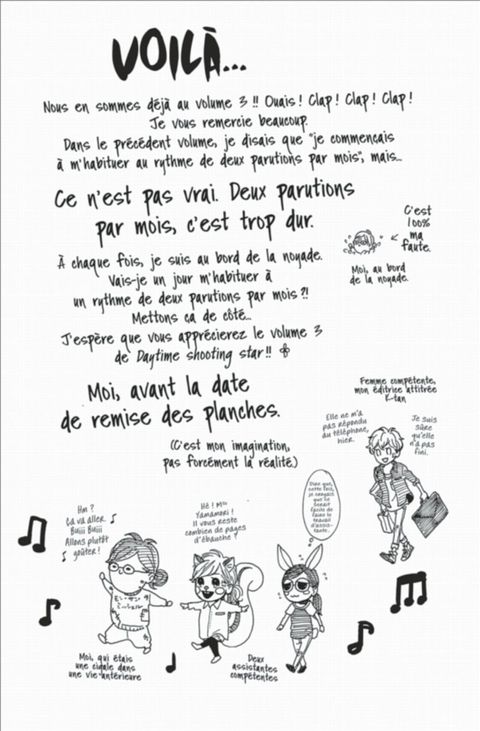 VOILÀ...
Nous en sommes déjà au volume 3 !! Ouais ! Clap ! Clap ! Clap !
Je vous remercie beaucoup.
Dans le précédent volume, je disais que "je commençais
à m'habituer au rythme de deux parutions par mois", mais...
Ce n'est pas vrai. Deux parutions
par mois, c'est trop dur.
C'est
100%
ma
faute.
Moi, au bord
de la noyade.
À chaque fois, je suis au bord de la noyade.
Vais-je un jour m'habituer à
un rythme de deux parutions par mois ?!
Mettons ça de côté...
J'espère que vous apprécierez le volume 3
de Daytime shooting star !!
Moi, avant la date
de remise des planches.
(C'est mon imagination,
pas forcément la réalité.)
Femme compétente,
mon éditrice attitrée
K-tan
Elle ne m'a
pas répondu
au téléphone,
hier.
Je suis
sûre
qu'elle
n'a pas
fini.
Hm ?
Ça va aller.
Buiii Buiii
Allons plutôt
goûter !
Hé ! Mlle
Yamamori !
Il vous reste
combien de pages
d'ébauche ?
Dire que,
cette fois,
je pensais
que ce
serait
facile de
faire le
travail
d'assis-
tante.
モン・サン
ミシェル
Moi, qui étais
une cigale dans
une vie antérieure
Deux
assistantes
compétentes